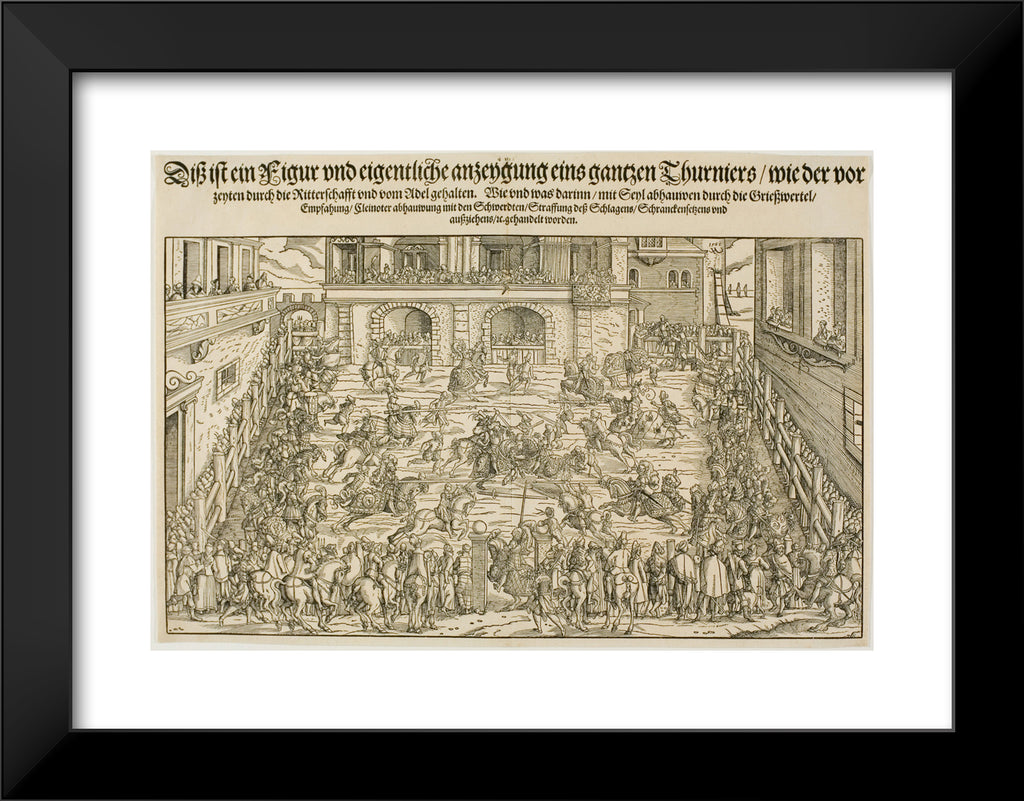 Diß ist ein Figur vnd eigentliche anzeygung eins gantzen Thurniers / wie der vor
zeyten durch die Ritterschafft vnd vom Adel gehalten. Wie vnd was darinn / mit Seyl abhauwen durch die Grießwertel /
Empfahung / Cleinoter abhauwung mit den Schwerdten / Straffung deß Schlagens / Schranckensetzens vnd
außziehens / ꝛc. gehandelt worden.